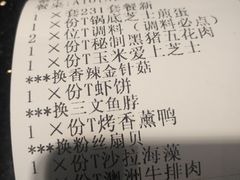 1 ×套231套餐霸
1 ×份T锅底芝士煎蛋
2 ×位T调料(调料必点)
1 ×份T秘制黑猪五花肉
1 ×份T玉米爱上芝士
***换香辣金针菇
1 ×份T虾饼
***换三文鱼脖
1 ×份T烤香薰鸭
***换粉丝扇贝
1 ×份T沙拉海藻
份T澳洲牛排肉